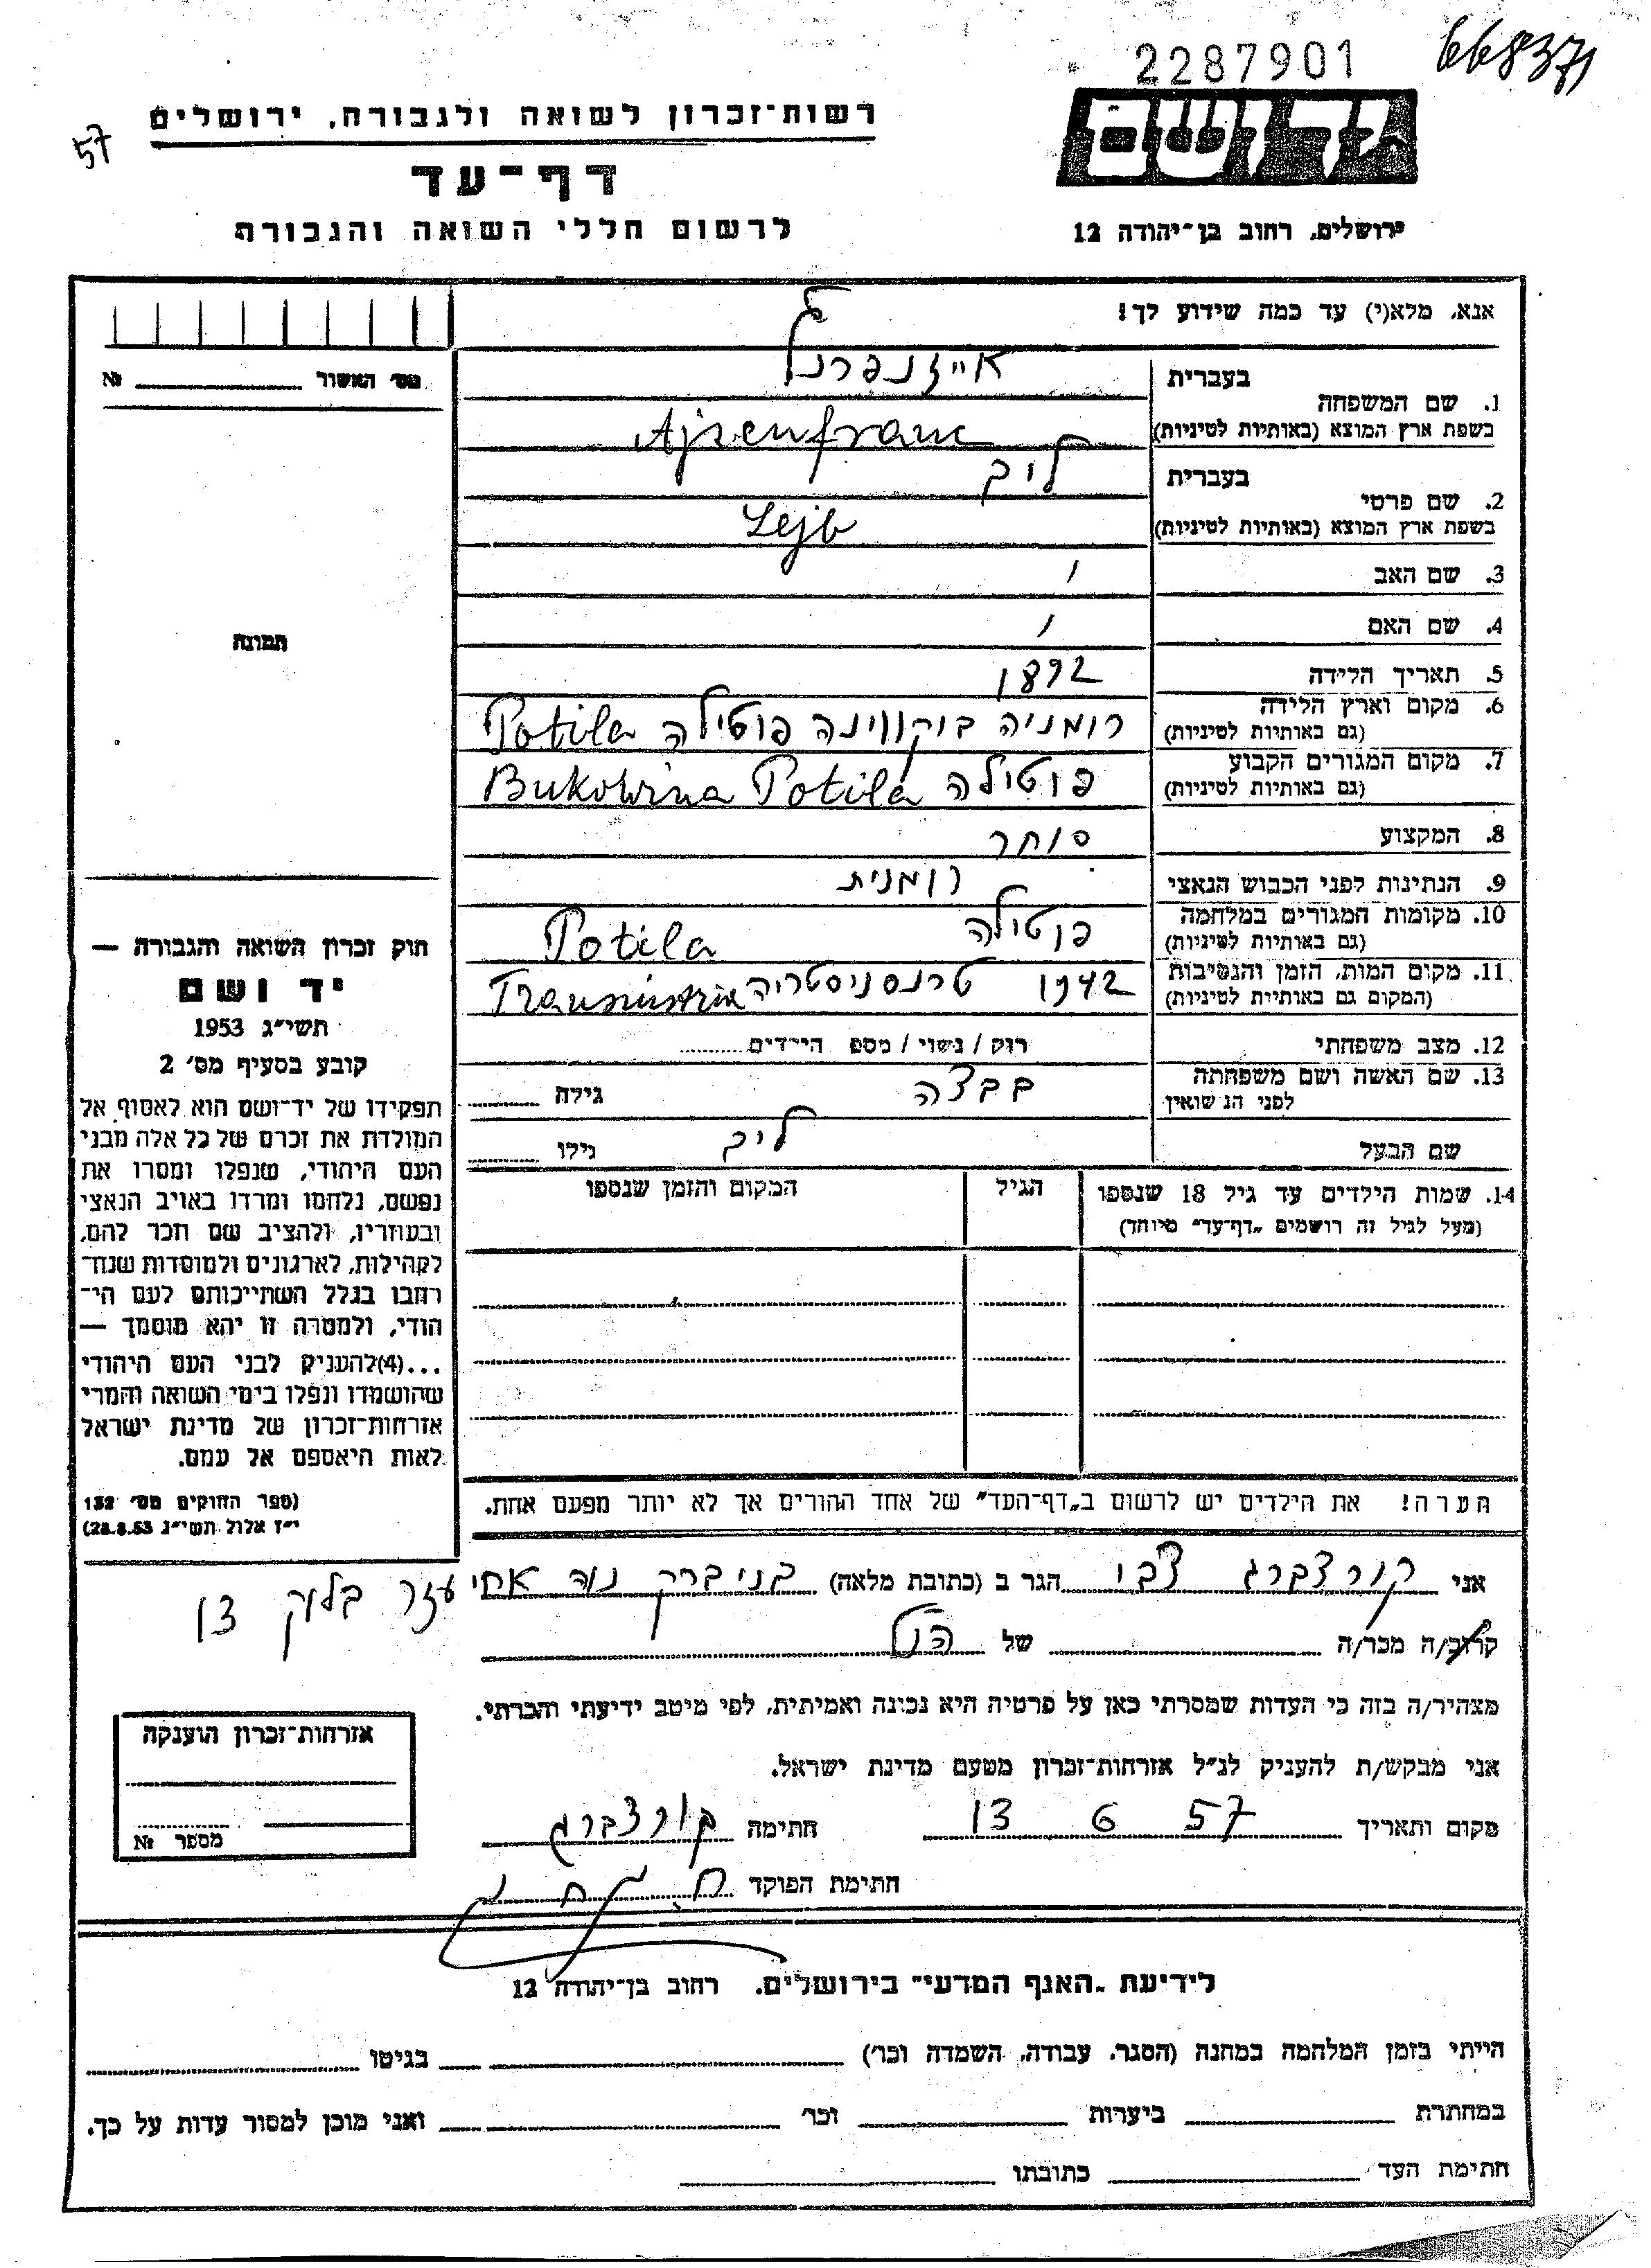 2287901
668371
57
רשות־זכרון לשואה ולגבורה, ירושלים
דף־עד
לרשום חללי השואה והגבורה
יד ושם
ירושלים, רחוב בן־יהודה 12
אנא, מלא(י) עד כמה שידוע לך!
מס' האשור №
1. שם המשפחה
בעברית אייזנפרנ
בשפת ארץ המוצא (באותיות לטיניות) Ajzenfranc
2. שם פרטי
בעברית ליב
בשפת ארץ המוצא (באותיות לטיניות) Lejb
3. שם האב /
4. שם האם /
5. תאריך הלידה 1892
6. מקום וארץ הלידה (גם באותיות לטיניות) רומניה בוקווינה פוטילה Potila
7. מקום המגורים הקבוע (גם באותיות לטיניות) פוטילה Bukowina Potila
8. המקצוע סוחר
9. הנתינות לפני הכבוש הנאצי רומנית
10. מקומות המגורים במלחמה (גם באותיות לטיניות) פוטילה Potila
11. מקום המות, הזמן והנסיבות (המקום גם באותיות לטיניות) 1942 טרנסניסטריה Transnistria
12. מצב משפחתי רוק / נשוי / מספ הילדים
13. שם האשה ושם משפחתה לפני הנשואין בבצה גילה
שם הבעל ליב גילו
14. שמות הילדים עד גיל 18 שנספו
(מעל לגיל זה רושמים "דף־עד" מיוחד)
הגיל
המקום והזמן שנספו
הערה! את הילדים יש לרשום ב"דף־העד" של אחד ההורים אך לא יותר מפעם אחת.
תמונה
חוק זכרון השואה והגבורה —
יד ושם
תשי"ג 1953
קובע בסעיף מס' 2
תפקידו של יד־ושם הוא לאסוף אל
המולדת את זכרם של כל אלה מבני
העם היהודי, שנפלו ומסרו את
נפשם, נלחמו ומרדו באויב הנאצי
ובעוזריו, ולהציב שם וזכר להם,
לקהילות, לארגונים ולמוסדות שנח־
רבו בגלל השתייכותם לעם הי־
הודי, ולמטרה זו יהא מוסמך —
...(4)להעניק לבני העם היהודי
שהושמדו ונפלו בימי השואה והמרי
אזרחות־זכרון של מדינת ישראל
לאות היאספם אל עמם.
(ספר החוקים מס' 132
י"ז אלול תשי"ג 28.8.53)
אני קורצברג צבי הגר ב (כתובת מלאה) בני ברק נוה אחיעזר בלוק 13
קרוב/ה מכר/ה של הנ"ל
מצהיר/ה בזה כי העדות שמסרתי כאן על פרטיה היא נכונה ואמיתית, לפי מיטב ידיעתי והכרתי.
אני מבקש/ת להעניק לנ"ל אזרחות־זכרון מטעם מדינת ישראל.
מקום ותאריך 13 6 57 חתימה קורצברג
חתימת הפוקד
אזרחות־זכרון הוענקה
מספר №
לידיעת "האגף המדעי" בירושלים, רחוב בן־יהודה 12
הייתי בזמן המלחמה במחנה (הסגר, עבודה, השמדה וכר) בגיטו
במחתרת ביערות וכר ואני מוכן למסור עדות על כך.
חתימת העד כתובתו